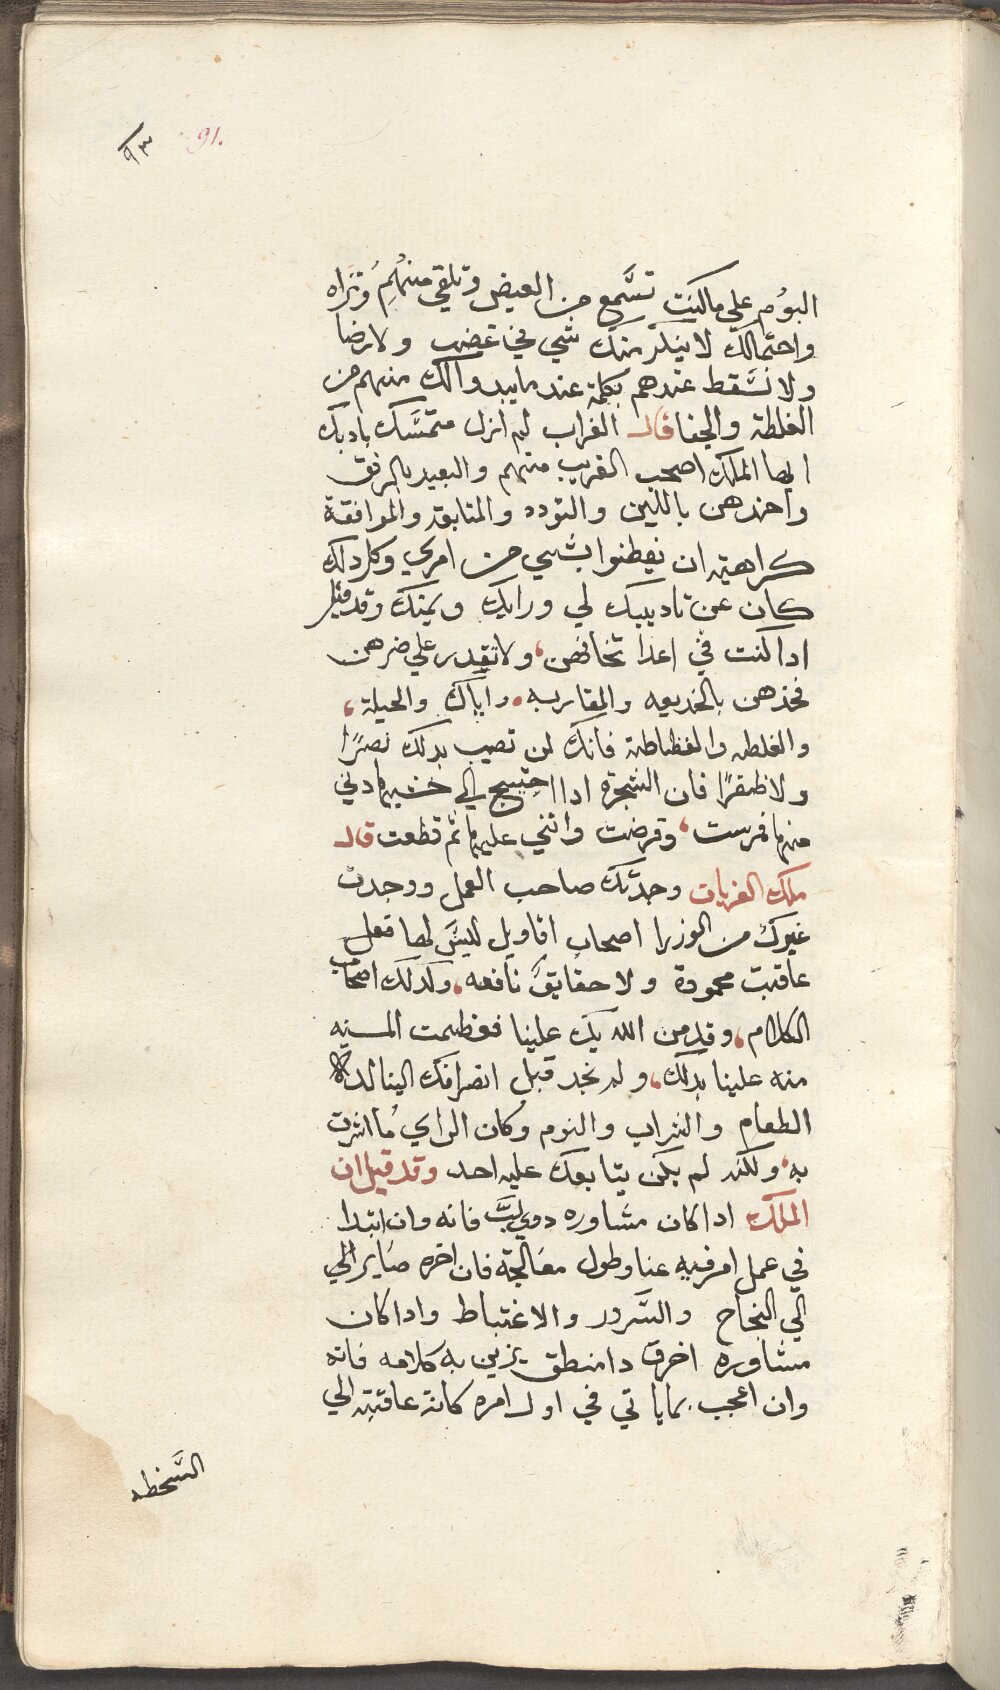 91.
٩٣
البوم علي ما كنت تسَّمع من العيض وتلقي منهُم وُتراه
واحتمالك لا ينكر منك شي في غضب ولا رضا
ولا تسَّقط عندهم بكلمة عند ما يبدوا لك منهم من
الغلظة والجفا قال الغراب لم ازل متمسَّك بادبك
ايها الملك اصحب القريب منهم والبعيد بالرفق
واخدهن باللين والتودد والمتابعة والموافقة
كراهية ان يفطنوا بشي من امري وكل دلك
كان عن تاديبك لي ورايك ويمنك وقد قيل
ادا كنت في اعدا تخافهن، ولا تقدر علي ضرهن
فخذهن بالخديعه والمقاربه. واياك والحيلة،
والغلظه والفظاظة فانك لن تصيب بدلك نصرًا
ولا ظفرًا فان الشجرة ادا احتيج الي خشبها دني
منها فمرست، وقرضت واثني عليها ثم قطعت قال
ملك الغربان وجدتك صاحب العمل ووجدت
غيرك من الوزرا اصحاب اقاويل ليسَّ لها فعل
عاقبت محمودة ولا حقايق نافعه، وكدلك اصحاب
الكلام، وقد من الله بك علينا فعظمت المسنه
منه علينا بدلك، ولم نجد قبل انصرافك الينا لدة
الطعام والشراب والنوم وكان الراي ما اشرت
به، ولكن لم يكن يتابعك عليه احد وقد قيل ان
الملك ادا كان مشاوره دوي لبَّ فانه وان ابتدا
في عمل امر فيه عنا وطول معَالجة فان اخره صَاير الي
الي النجاح والسَّرور والاغتباط وادا كان
مشاوره اخرق دا منطق يزين به كلامه فانه
وان اعجب بما ياتي في اول امره كانة عاقبته الي
السَّخطه